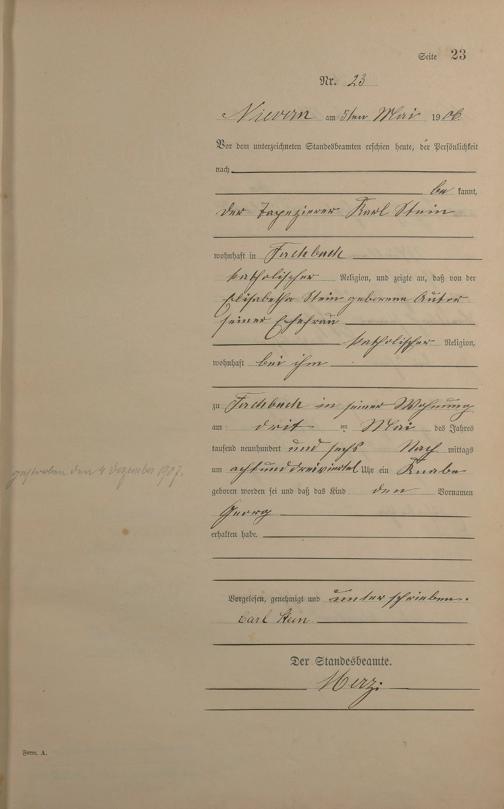 Seite 23
Nr. 23
Nievern am 5ten Mai 1906.
Vor dem unterzeichneten Standesbeamten erschien heute, der Persönlichkeit
nach
be kannt,
der Tapezierer Karl Stein
wohnhaft in Fachbach
katholischer Religion, und zeigte an, daß von der
Elisabetha Stein geborene
seiner Ehefrau
katholischer Religion,
wohnhaft bei ihm
zu Fachbach in seiner Wohnung
am drit en Mai des Jahres
tausend neunhundert und sechs Nach mittags
um acht und dreiviertel Uhr ein Knabe
geboren worden sei und daß das Kind den Vornamen
gestorben den 4. Dezember
Georg
erhalten habe.
Vorgelesen, genehmigt und unterschrieben.
Carl Stein
Der Standesbeamte.
Merz
Form. A.